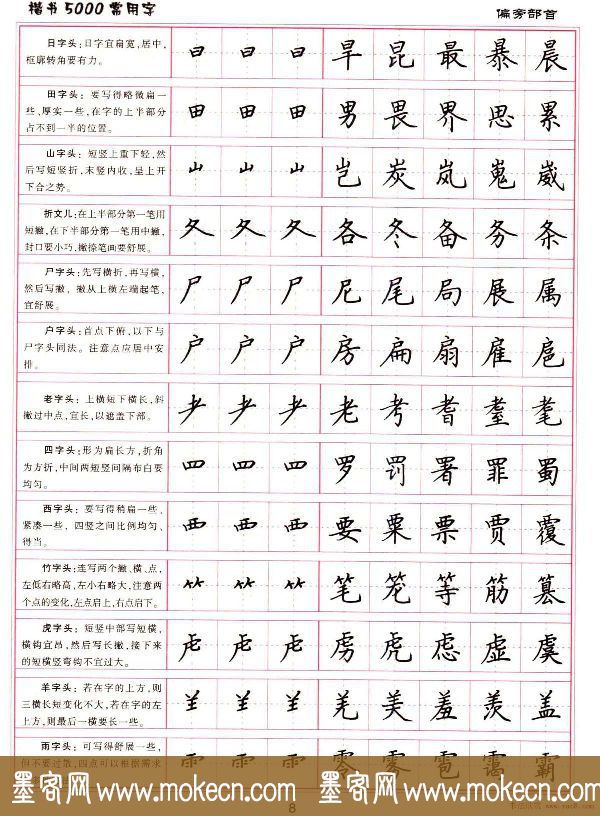 楷书5000常用字
偏旁部首
日字头：日字宜扁宽，居中，
框廓转角要有力。
日 日 日 旱 昆 最 暴 晨
田字头：要写得略微扁一
些，厚实一些，在字的上半部分
占不到一半的位置。
田 田 田 男 畏 界 思 累
山字头：短竖上重下轻，然
后写短竖折，末竖内收，呈上开
下合之势。
山 山 山 岂 炭 岚 嵬 崴
折文儿：在上半部分第一笔用
短撇，在下半部分第一笔用中撇，
封口要小巧，撇捺笔画要舒展。
夂 夂 夂 各 冬 备 务 条
尸字头：先写横折，再写横，
然后写撇，撇从上横左端起笔，
宜舒展。
尸 尸 尸 尼 尾 局 展 属
户字头：首点下俯，以下与
尸字头同法。注意点应居中安
排。
户 户 户 房 扁 扇 雇 扈
老字头：上横短下横长，斜
撇过中点，宜长，以遮盖下部。
耂 耂 耂 老 考 耆 耋 耄
四字头：形为扁长方，折角
为方折，中间两短竖间隔布白要
均匀。
罒 罒 罒 罗 罚 署 罪 蜀
西字头：要写得稍扁一些，
紧凑一些，四竖之间比例均匀、
得当。
覀 覀 覀 要 粟 票 贾 覆
竹字头：连写两个撇、横、点，
左低右略高，左小右略大，注意两
个点的变化，左点启上，右点启下。
⺮ ⺮ ⺮ 笔 笼 等 筋 篡
虎字头：短竖中部写短横，
横钩宜昂，然后写长撇，接下来
的短横竖弯钩不宜过大。
虍 虍 虍 虏 虎 虑 虚 虞
羊字头：若在字的上方，则
三横长短变化不大，若在字的左
上方，则最后一横要长一些。
⺷ ⺷ ⺷ 羌 美 羞 羡 盖
雨字头：可写得舒展一些，
但不要过散，四点可以根据需求
⻗ ⻗ ⻗ 零 雾 雹 霭 霸
墨客网www.mokecn.com 墨客网www.mokecn.com
8